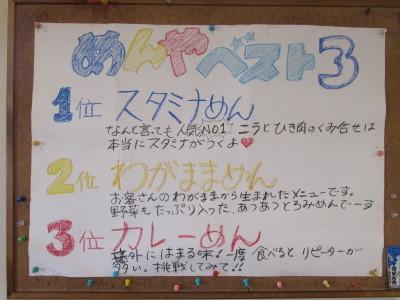 めんやベスト3
1位 スタミナめん
なんと言っても人気NO1 ニラとひき肉のくみ合せは
本当にスタミナがつくよ♥
2位 わがままめん
お客さんのわがままから生まれたメニューです。
野菜もたっぷり入った、あつあつとろみめんでーす
3位 カレーめん
意外にはまる味!一度 食べると リピーターが
多い。挑戦してみて!!